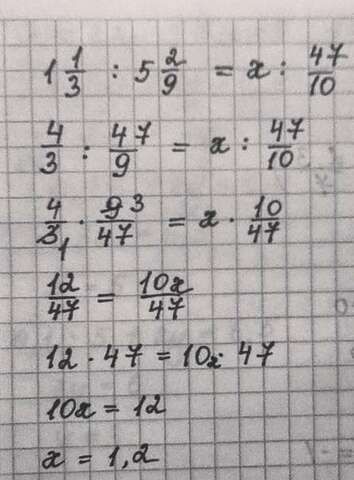 1 1/3 : 5 2/9 = x : 47/10
4/3 : 47/9 = x : 47/10
4/3 1 · 9 3/47 = x · 10/47
12/47 = 10x/47
12 · 47 = 10x · 47
10x = 12
x = 1,2